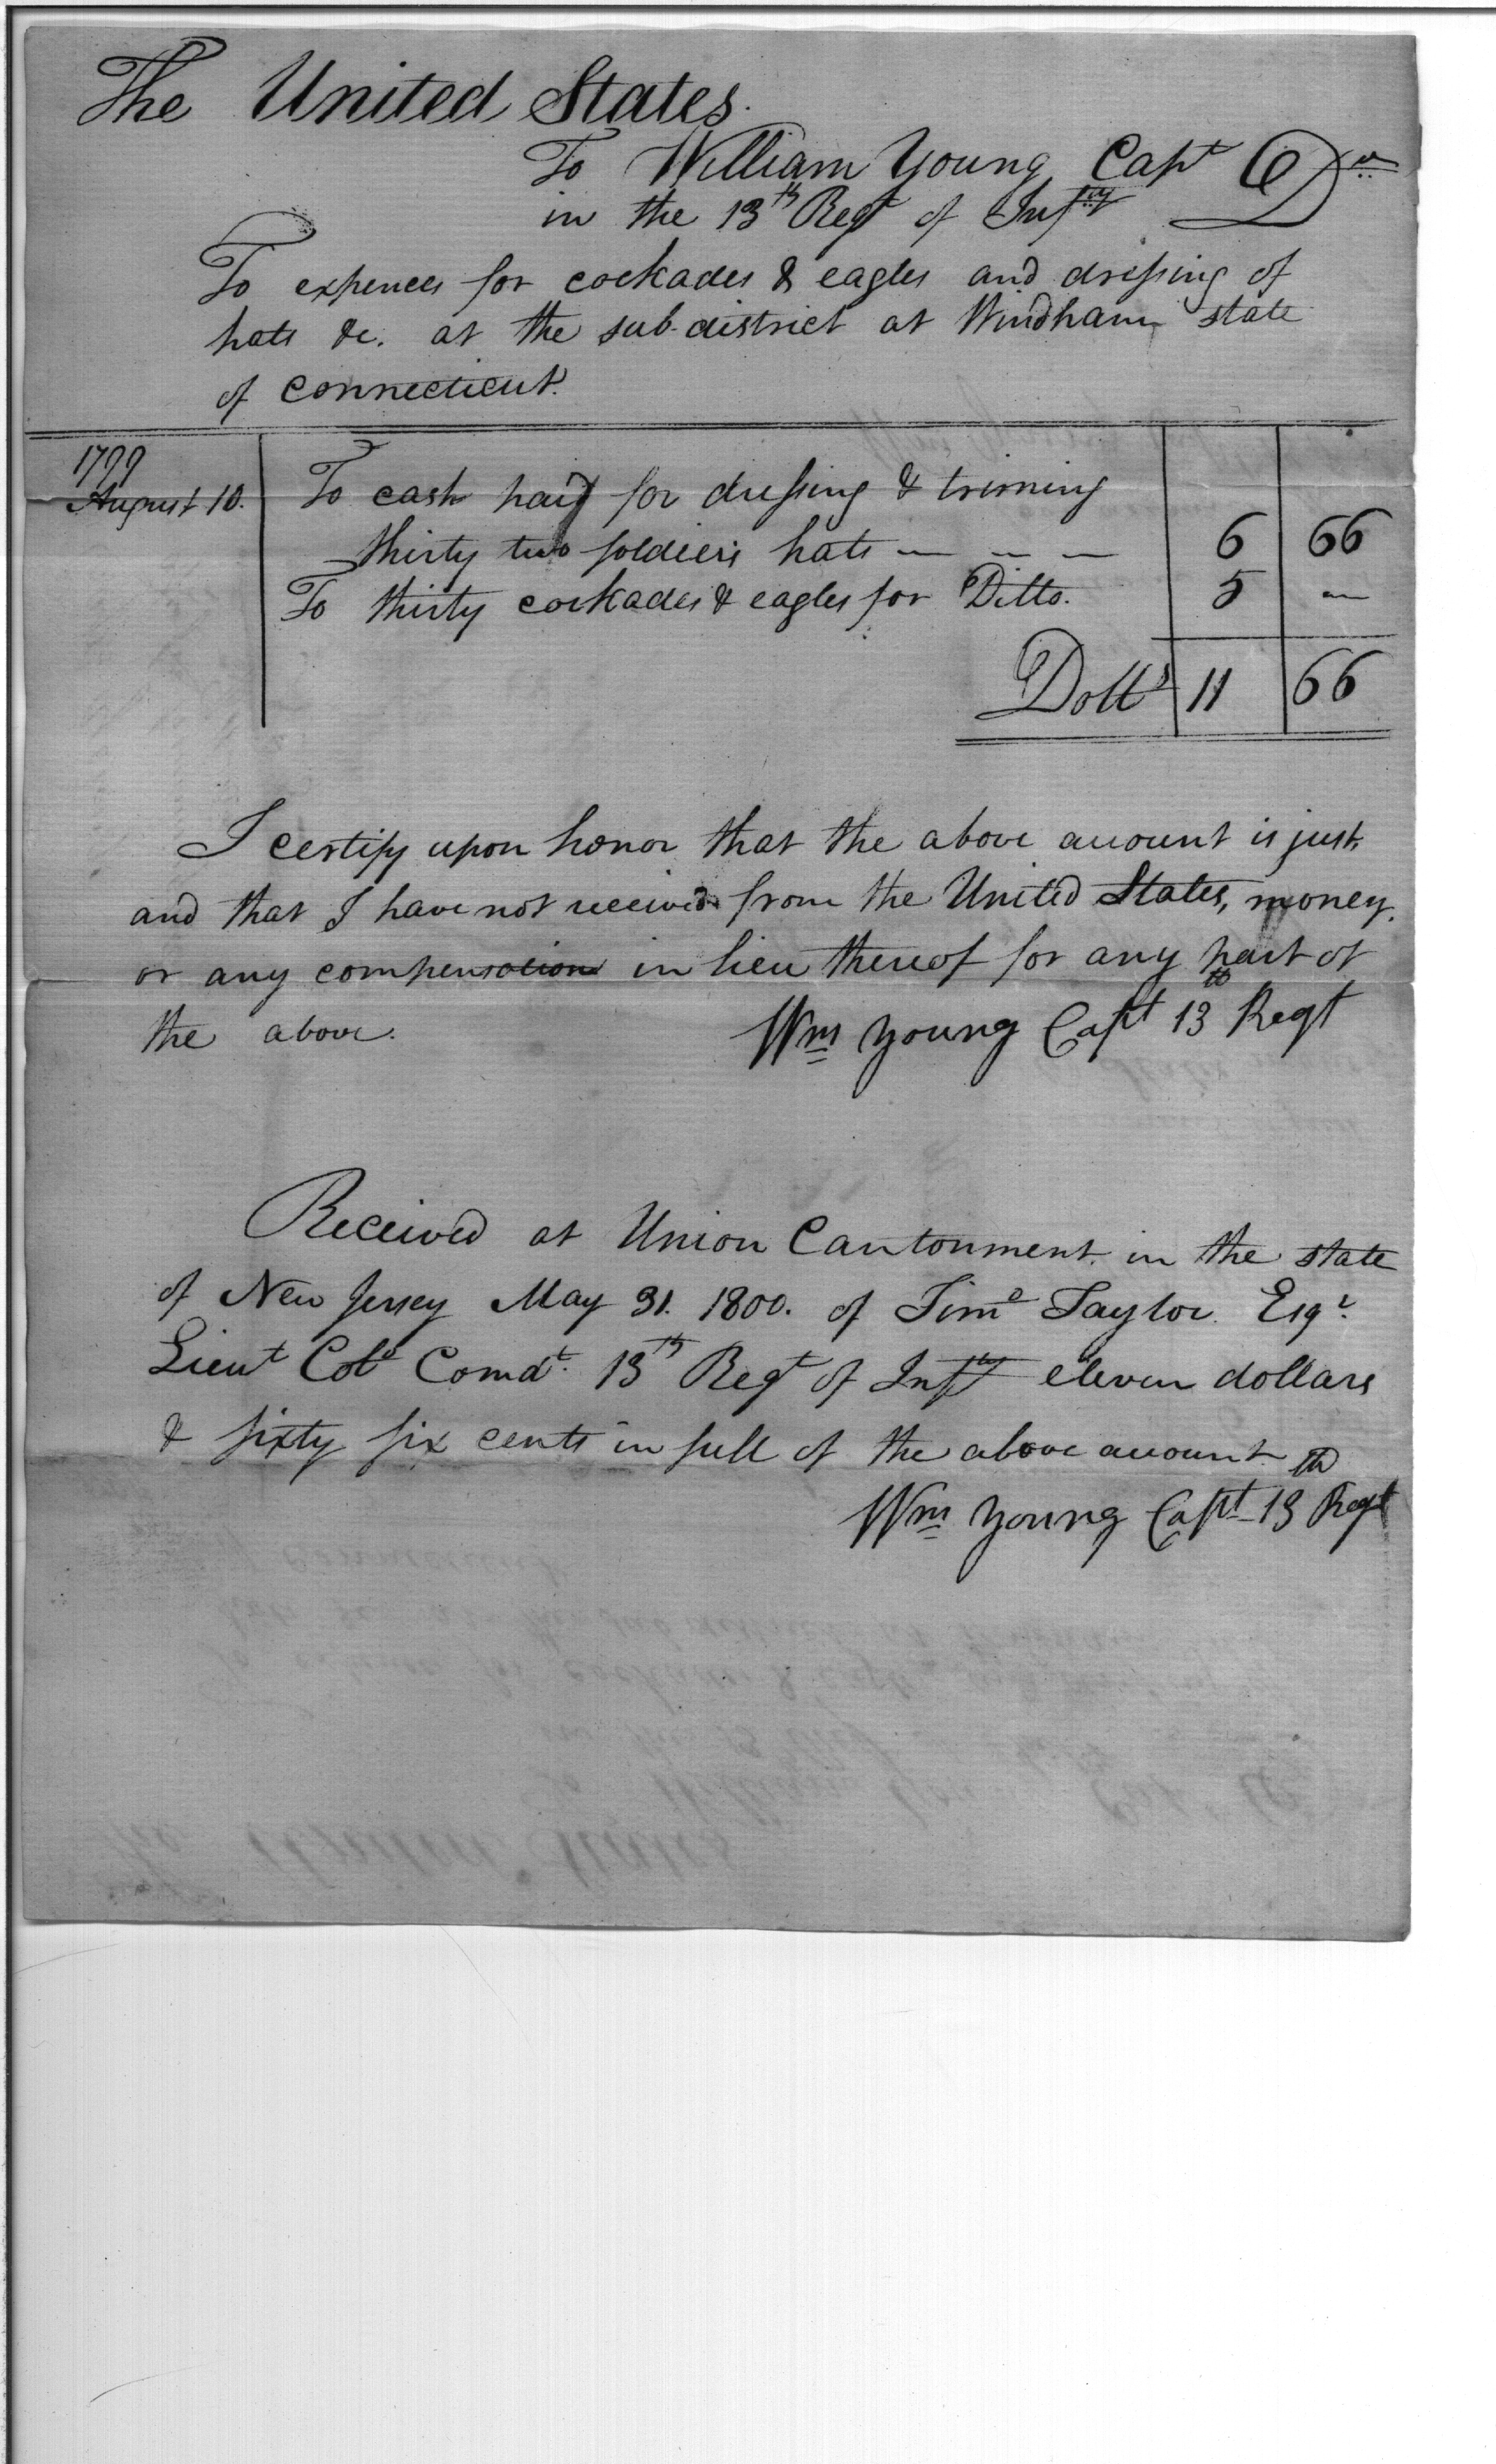 The United States.
To William Young Capt Dr
in the 13th Regt of Infty
To expences for cockades & eagles and dressing of
hats &c. at the sub-district at Windham state
of Connecticut.
1799
August 10. To cash paid for dressing & triming
thirty two soldiers hats — — — 6 66
To thirty cockades & eagles for Ditto. 5 —
Dolls 11 66
I certify upon honor that the above account is just,
and that I have not received from the United States, money,
or any compensation in lieu thereof for any part of
the above.
Wm Young Capt 13th Regt
Received at Union Cantonment in the state
of New Jersey May 31. 1800. of Timo Taylor Esqr.
Lieut Colo Comdt. 13th Regt of Infty eleven dollars
& sixty six cents in full of the above account.
Wm Young Capt 13th Regt